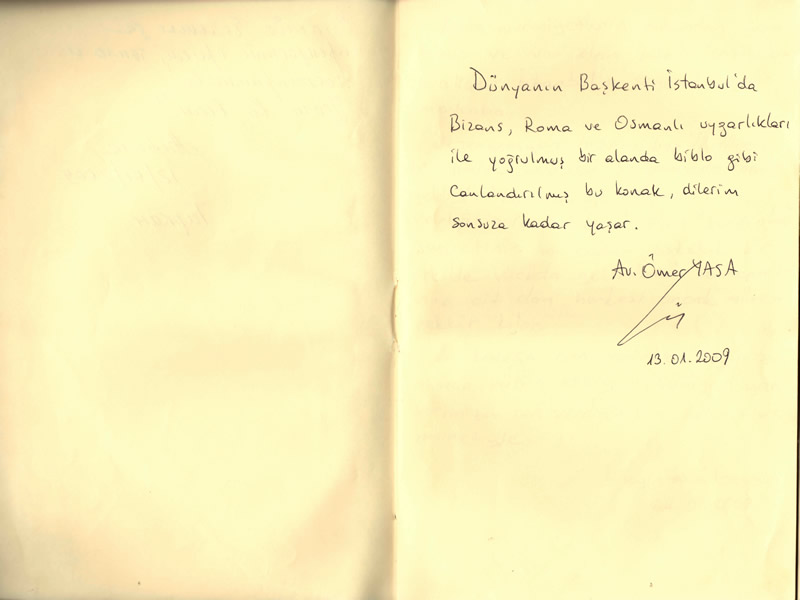 Dünyanın Başkenti İstanbul'da
Bizans, Roma ve Osmanlı uygarlıkları
ile yoğrulmuş bir alanda biblo gibi
Canlandırılmış bu konak, dilerim
sonsuza kadar yaşar.
Av. Ömer YASA
13.01.2009